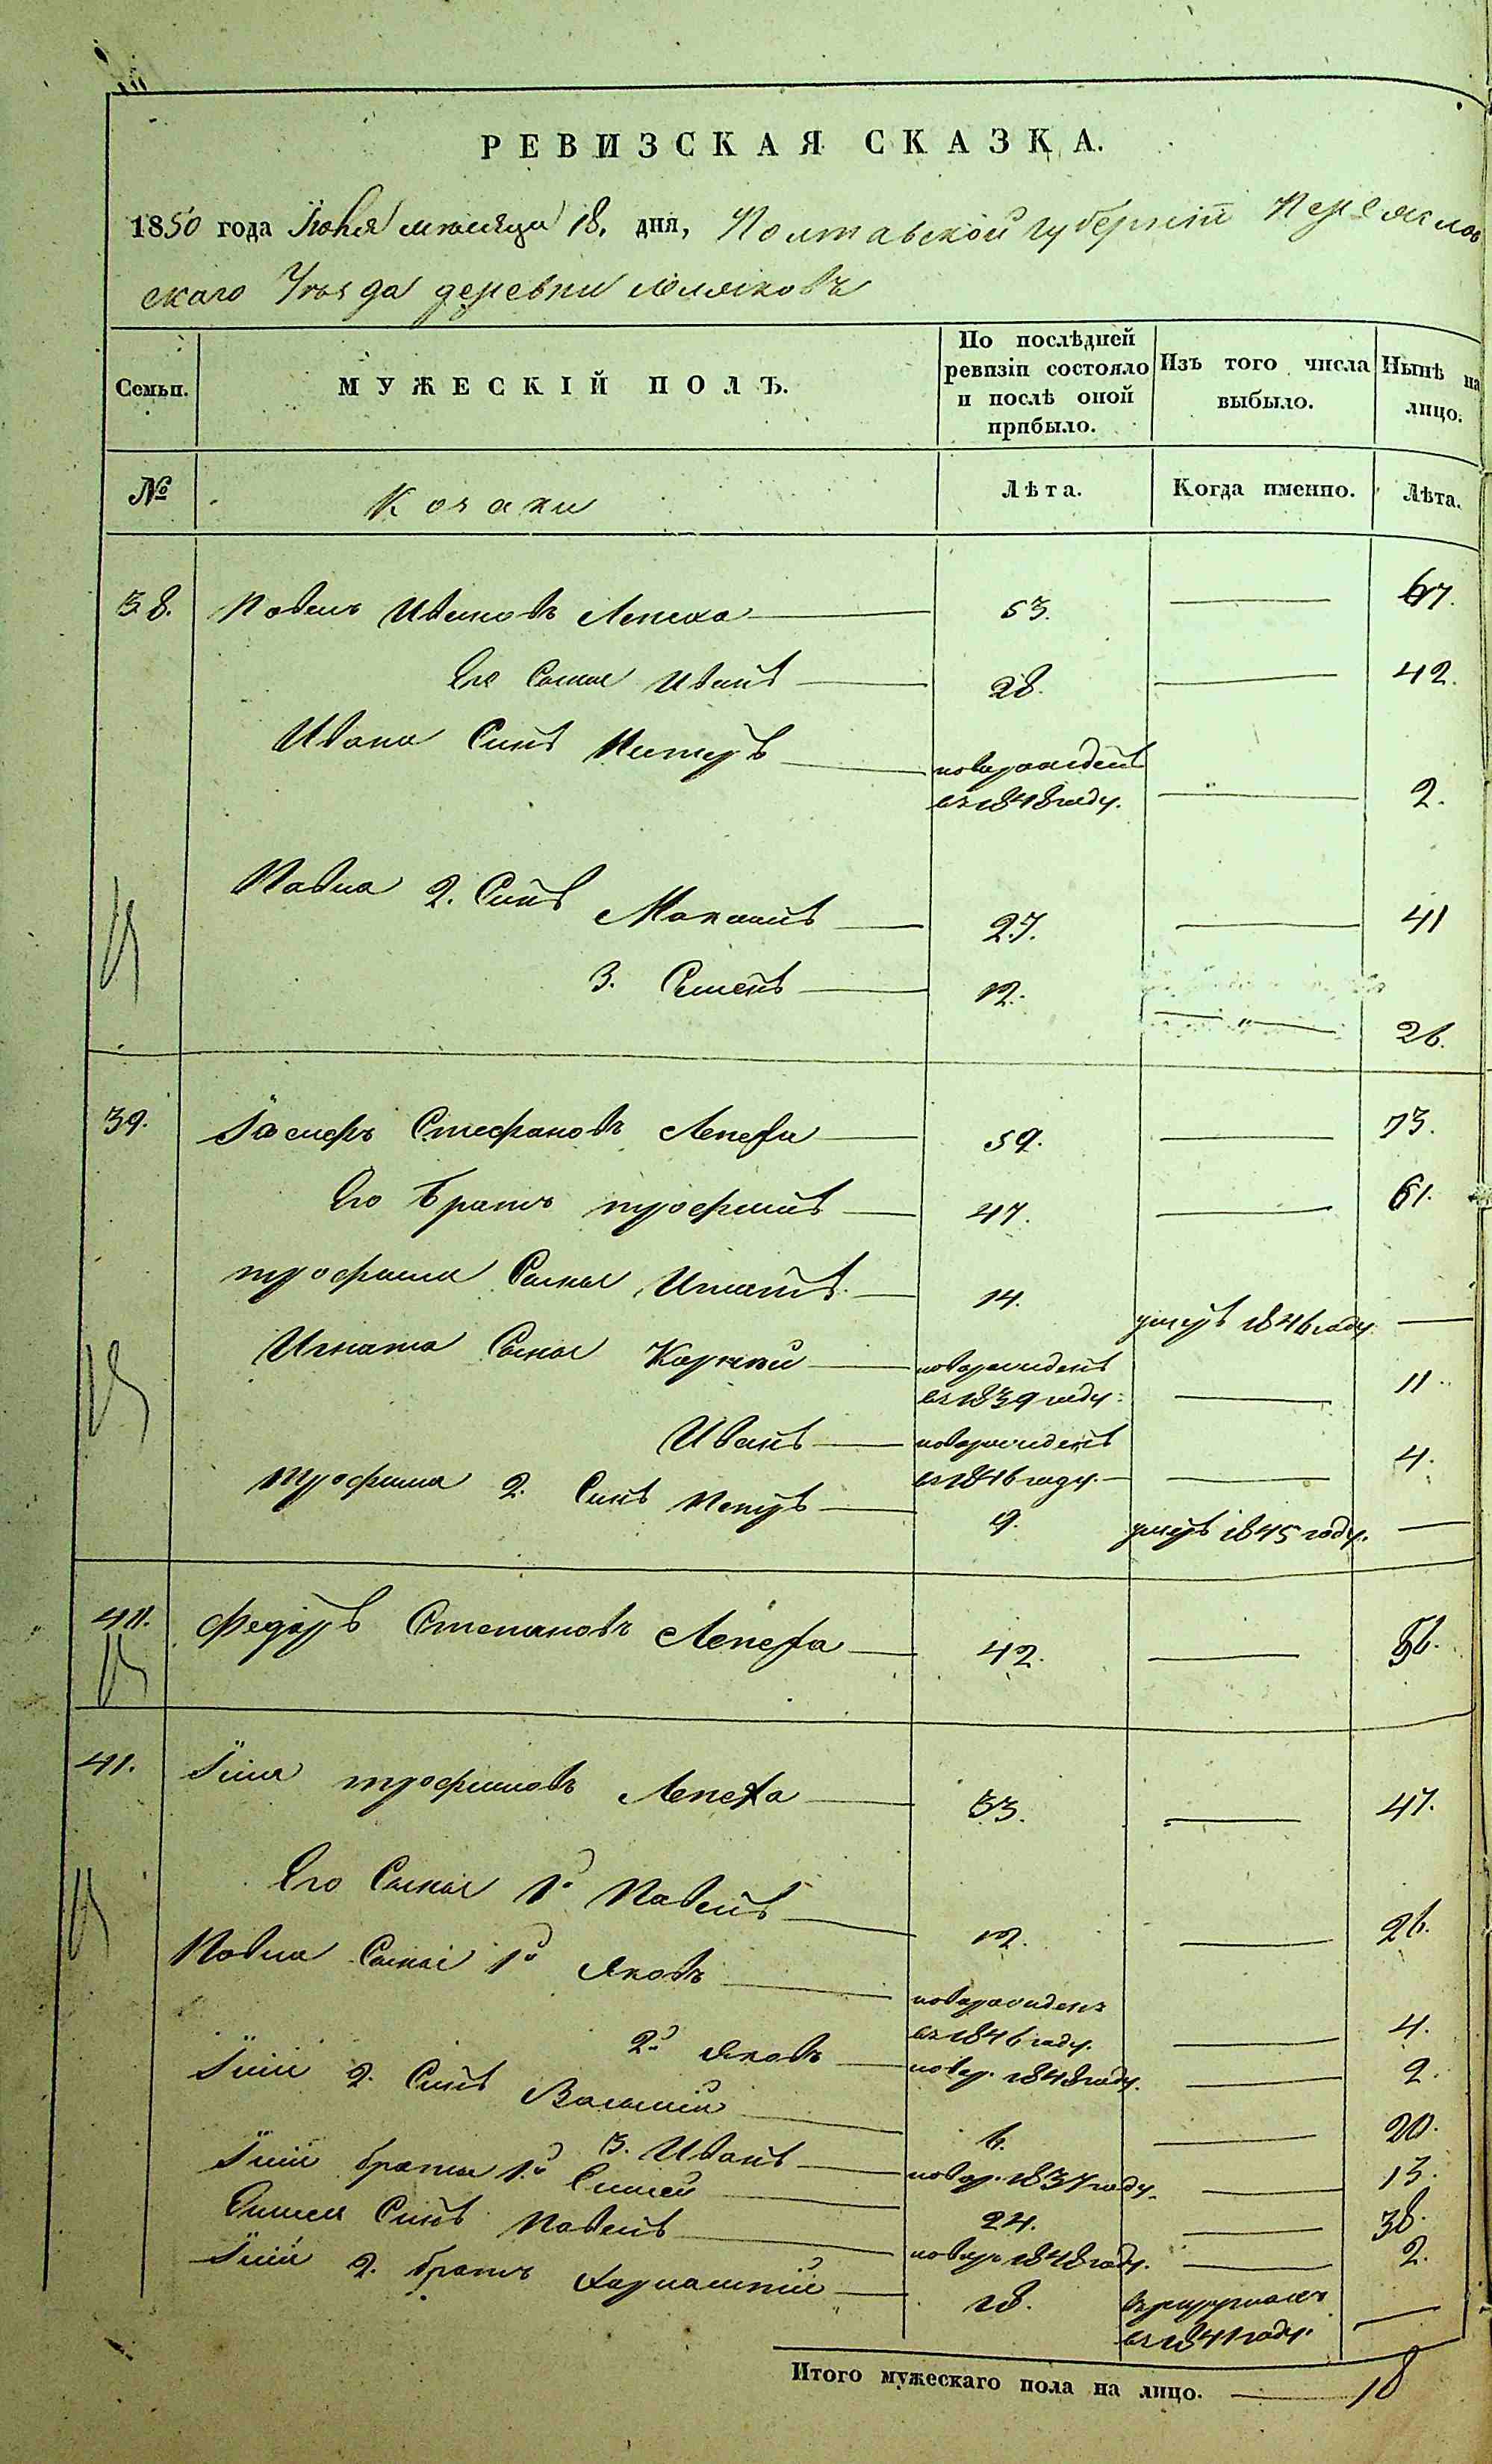 РЕВИЗСКАЯ СКАЗКА.
1850 года Іюня месяца 18. дня, Полтавской губерніи Переяслов
скаго Уезда деревни
Семьи. МУЖЕСКІЙ ПОЛЪ. По послѣдней ревизіи состояло и послѣ оной прибыло. Изъ того числа выбыло. Нынѣ на лицо.
№ Козаки Лѣта. Когда именно. Лѣта.
38. Павелъ Ивановъ Лепеха 53. 67.
Его Сынъ Иванъ 28. 42.
Ивана Синъ Петръ новорожденъ
въ 1848 году. 2.
Павла 2. Синъ 27. 41
3. Семенъ 12. 26.
39. Іосифъ Стефановъ Лепеха 59. 73.
Его братъ трофимъ 47. 61.
трофима Сынъ Игнатъ 14. умеръ 1846 году
Игната Сыны Карпъ новорожденъ
въ 1839 году. 11
Иванъ новорожденъ
въ 1846 году. 4.
трофима 2. Синъ Петръ 9. умеръ 1845 году.
Федоръ Степановъ Лепеха 42. 56.
41. трофимовъ Лепеха 33. 47.
Его Сыны 1й Павелъ 12. 26.
Павла Сыны 1й Яковъ новорожденъ
въ 1846 году. 4.
2й Яковъ новор. 1848 году. 2.
2. Синъ Василій 6. 20.
3. Иванъ новор. 1837 году. 13.
братья 1й 24. 38.
Синъ Павелъ новор. 1848 году. 2.
2. братъ 18. в рекрутахъ
въ 1841 году.
Итого мужескаго пола на лицо. 18